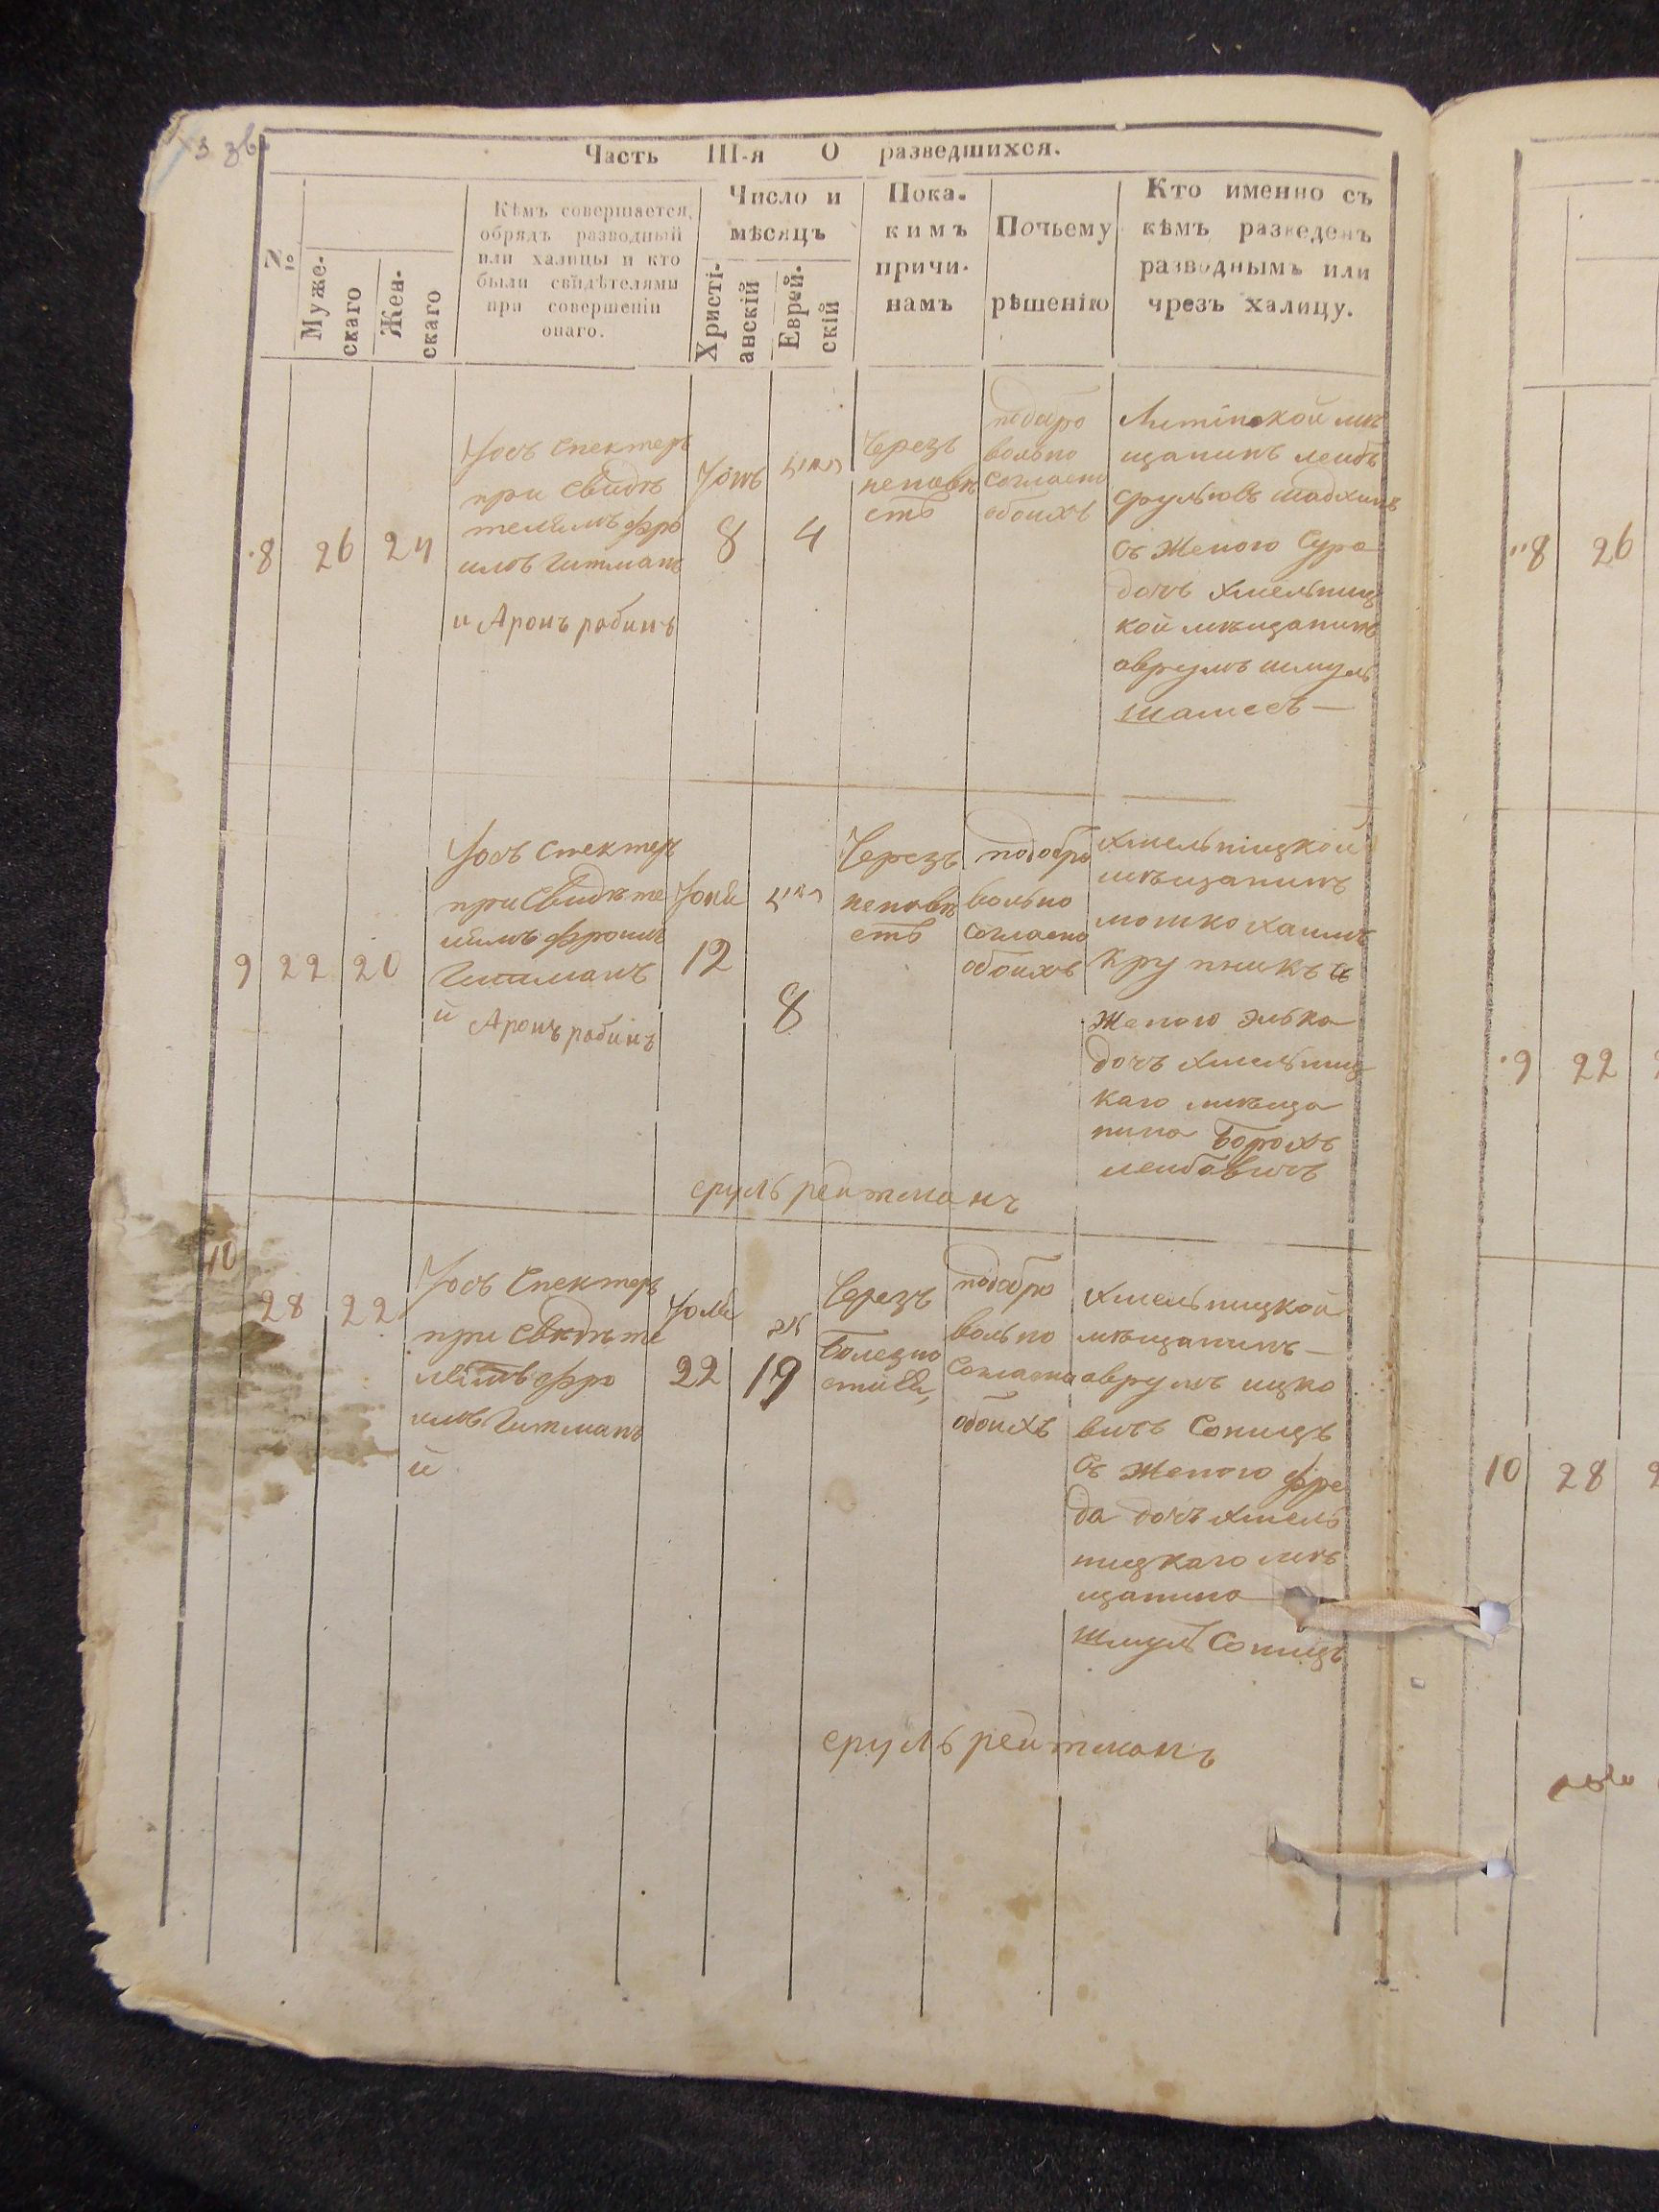 Часть III-я О разведшихся.
№
Муже-
скаго
Жен-
скаго
Кѣмъ совершается,
обрядъ разводный
или халицы и кто
были свѣдѣтелями
при совершеніи
онаго.
Число и
мѣсяцъ
Христі-
анскій
Еврей-
скій
Пока-
кимъ
причи-
намъ
Почьему
рѣшенію
Кто именно съ
кѣмъ разведенъ
разводнымъ или
чрезъ халицу.
8
26
24
Іосъ Спектеръ
при свидѣ
телямъ фро
имъ Гитманъ
и Аронъ рабинъ
Іюнь
8
4
Через
неповѣ
сть
подобро
вольно
согласно
обоихъ
Литінской мѣ
щанинъ леибъ
сруліовъ шадхинъ
съ женою Сура
дочъ хмельниц
кой мѣщанинъ
аврумъ шмуль
шамесъ —
9
22
20
Іосъ Спектеръ
при Свидѣте
лямъ фроимъ
Гитманъ
и Аронъ рабинъ
12
8
Черезъ
неповѣ
сть
подобро
вольно
согласно
обоихъ
хмельніцкой
мѣщанинъ
мошко хаимъ
Крупникъ съ
женою элька
дочъ хмельниц
каго мѣща
нина Борохъ
леибовичъ
сруль реитманъ
10
28
22
Іосъ Спектеръ
при Свидѣте
лямъ фро
имъ Гитманъ
и
22
19
Черезъ
Болезно
подобро
вольно
Согласно
обоихъ
хмельницкой
мѣщанинъ —
аврумъ ицко
вичъ Сониць
съ женою фре
да дочъ хмель
ницкаго мѣ
щанина
шмуль Сониць
сруль реитманъ
8 26
9 22
10 28